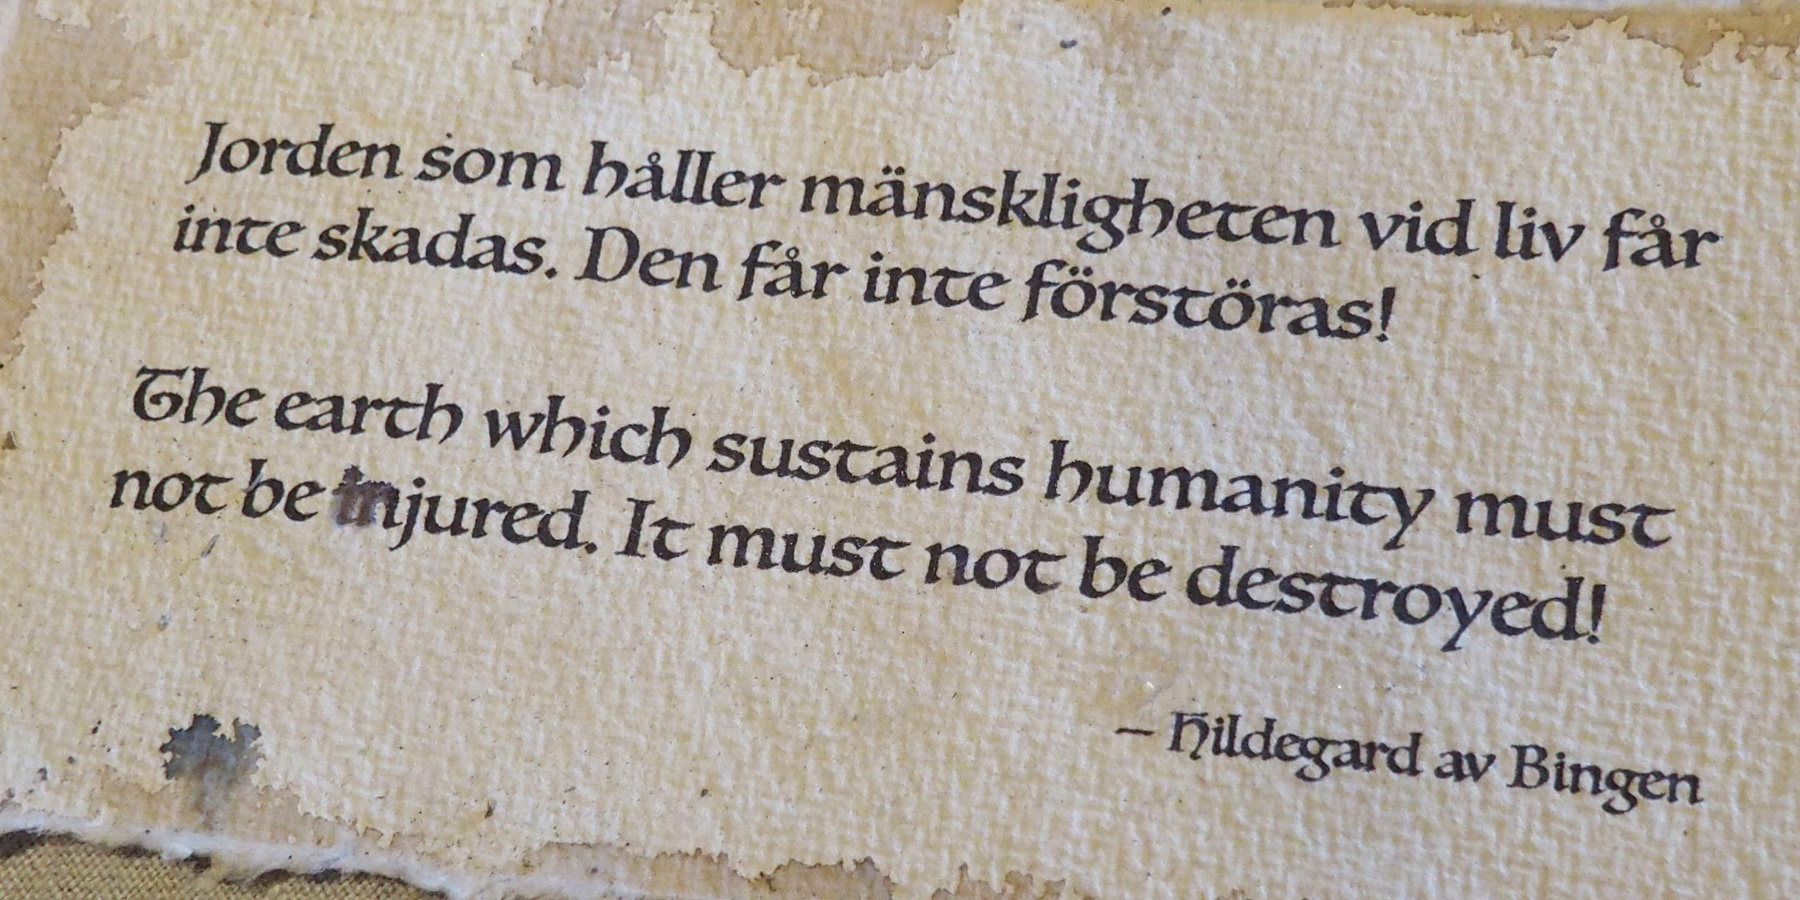 Jorden som håller mänskligheten vid liv får
inte skadas. Den får inte förstöras!
The earth which sustains humanity must
not be injured. It must not be destroyed!
– Hildegard av Bingen